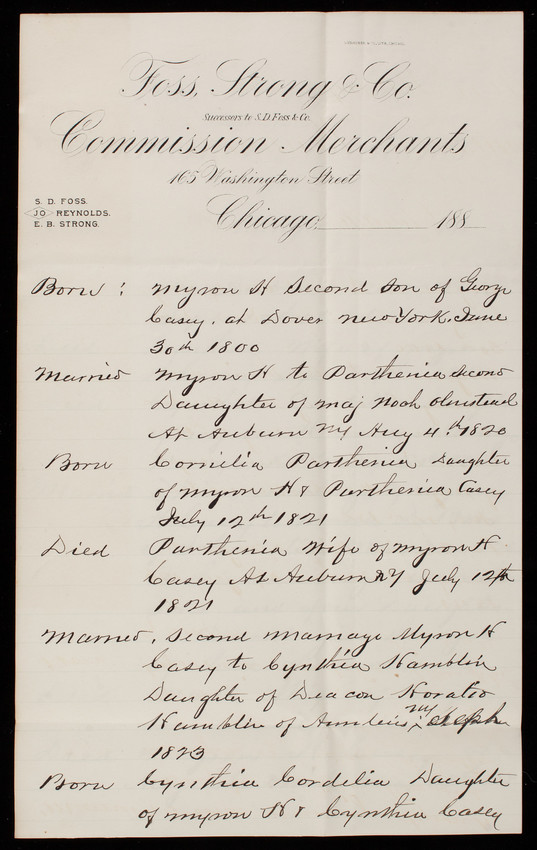 Foss, Strong & Co.
Successors to S.D. Foss & Co.
Commission Merchants
165 Washington Street
S. D. FOSS.
JO REYNOLDS.
E. B. STRONG.
Chicago 188
Born : Myron H Second Son of George
Casey. at Dover New York. June
30th 1800
Married Myron H to Parthenia Second
Daughter of Maj Noah Olmstead
At Auburn NY Aug 4th 1820
Born Cornilia Parthenia Daughter
of Myron H & Parthenia Casey
July 12th 1821
Died Parthenia Wife of Myron H
Casey At Auburn NY July 12th
1821
Married, Second Marriage Myron H
Casey to Cynthia Hamblin
Daughter of Deacon Horatio
Hamblin of NY
1823
Born Cynthia Cordelia Daughter
of Myron H & Cynthia Casey